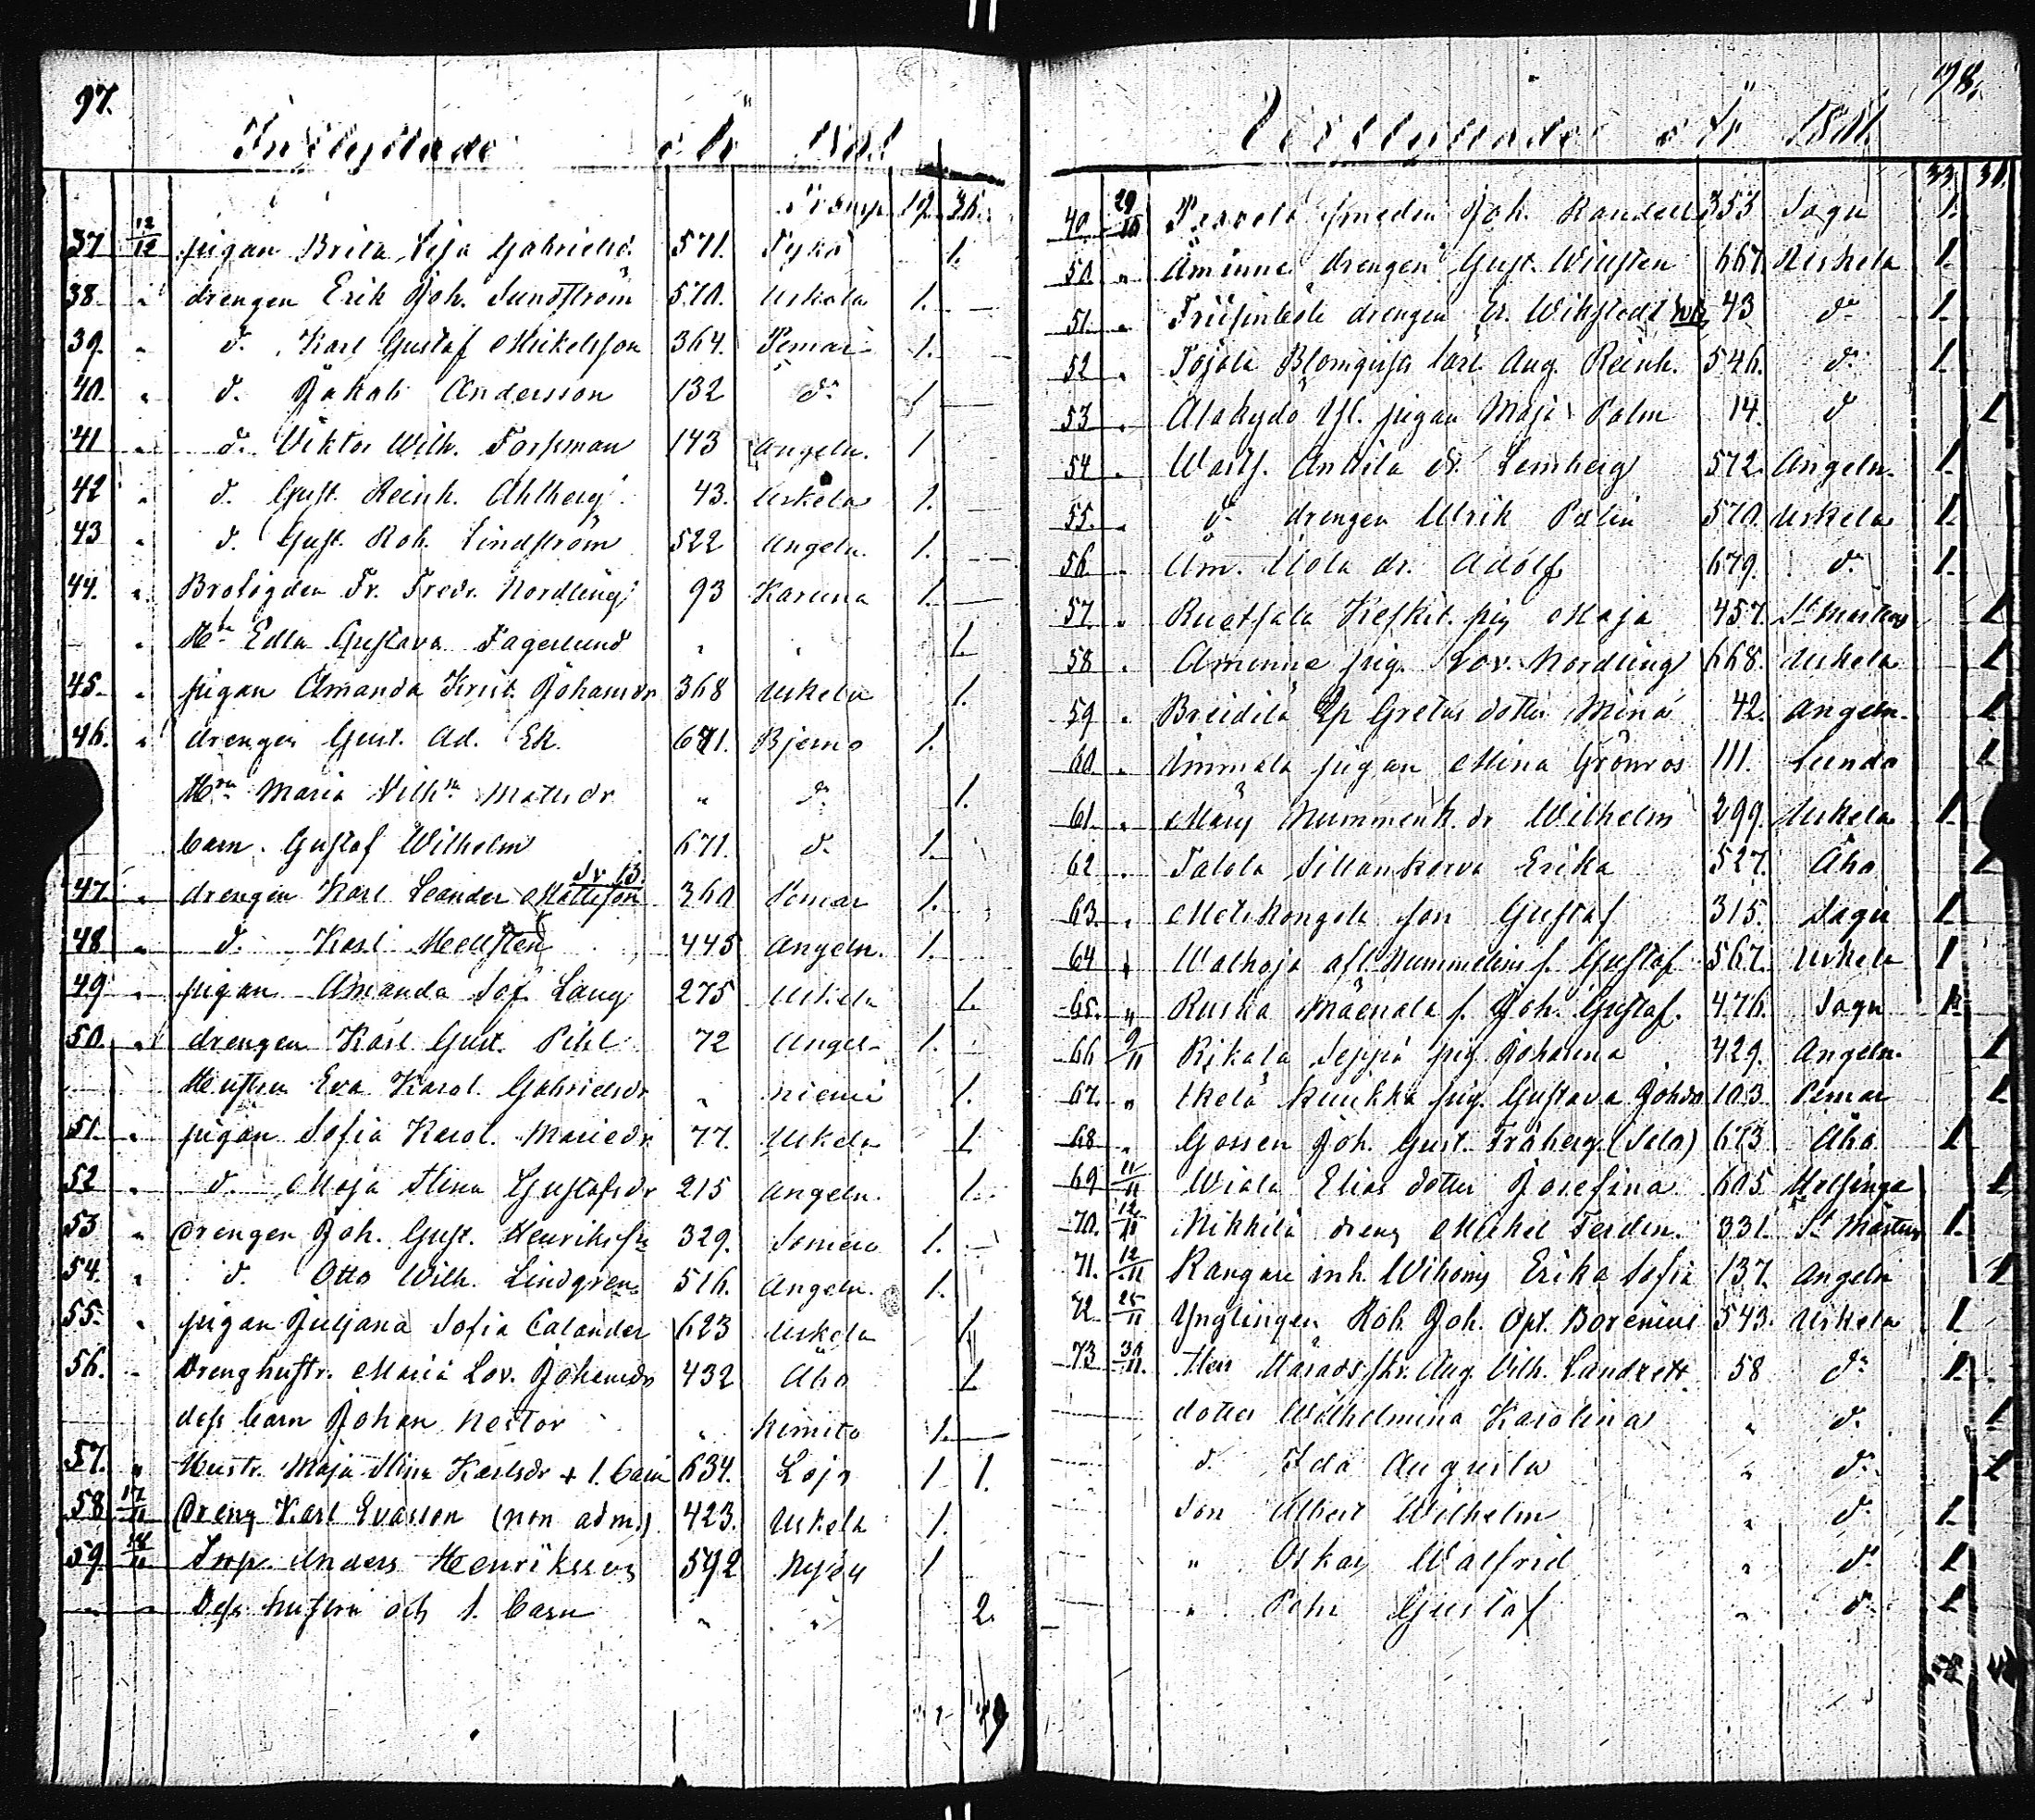 97.
Inflyttade år
Transp. 19. 36.
37 12/12 pigan Brita Lisa Gabrielsd. 571. Tykö 1.
38 " drengen Erik Joh. Sundström 570. Uskela 1.
39. " d. Karl Gustaf Mickelsson 364. Pemar 1.
40. " d. Jakob Andersson 132 do 1
41 " d. Viktor Wilh. Forssman 143 Angeln. 1
42 " d. Gust. Reinh. Ahlberg 43. Uskela 1.
43 " d. Gust. Rob. Lindström 522 Angeln. 1.
44. " Fr. Fredr. Nordling 93 Karuna 1.
" Hu Edla Gustava Fagerlund " " 1.
45. " pigan Amanda Krist. Johansdr 368 Uskela 1.
46. " drengen Gust. Ad. Ek. 671. Bjerno 1.
Hru Maria Vilhna Matsdr " do 1.
barn. Gustaf Wilhelm 671. do 1.
47. " drengen Karl Leander Mattsson 360 Somero 1.
48 " d. Karl Hellsten 445 Angeln. 1.
49 " pigan Amanda Sof. Lang 275 Uskela 1.
50. " drengen Karl Gust. Pihl 72 Angel- 1.
Hustru Eva Karol. Gabrielsdr " niemi 1.
51. " pigan Sofia Karol. Mariedr 77. Uskela 1
52 " d. Maja Stina Gustafsdr 215 Angeln. 1.
53 " Drengen Joh. Gust. Henrikssn 329. Somero 1.
54. " d. Otto Wilh. Lindgren 516. Angeln. 1.
55. " pigan Juljana Sofia Calander 623 Uskela 1
56. " Drenghustr. Maria Lov. Johansdr 432 Åbo 1
dess barn Johan Nestor " Kimito 1.
57. " Hustr. Maja Stina Karlsdr + 1. barn 634. Lojo 1 1.
58 17/11 Dreng Karl Evasson (non adm.) 423. Uskela 1.
59. 18/11 Insp. Anders Henriksson 592 1
Dess hustru och 1. barn " " 2.
49

98.
Utflyttade år
33. 31.
29/10 smeden Joh. Randell 353 Sagu 1.
50. " Åminne drengen Gust. Willsten 667. Uskela 1.
51. " drengen Er. Wikstedt 43 do 1.
52 " Tojala Blomqvists Carl Aug. Reinh. 546. do 1.
53 " Alakydö Yl. pigan Maja Palm 14. d 1
54 " Anttila dr. Lemberg 572. Angeln. 1.
55. " d. drengen Ulrik Palin 570. Uskela 1.
56 " Åm. dr. Adolf 679. do 1.
57. " pig Maja 457. St Mårtens 1
58 " Åminne pig. Lov. Nordling 668. Uskela 1
59 " Gretas dotter Mina 42. Angeln. 1
60. " Ummala pigan Mina Grönros 111. Lundo 1
61. " dr Wilhelm 299. Uskela 1.
62 " Erika 527. Åbo 1
63. " son Gustaf 315. Sagu 1
64 " afl. Nummelins s. Gustaf 567. Uskela 1
65. " Ruska Mäenala s. Joh. Gustaf. 476. Sagu 1.
66 9/11 Rikala Seppä pig. Johanna 429. Angeln. 1
67. " pig. Gustava Johdr 103. Pemar 1
68 " Gossen Joh. Gust. 673 Åbo 1
69 11/11 Wiala Elias dotter Josefina 605 Helsinge 1
70. 12/11 Nikkilä dreng Mickel Ferdin. 331. St Mårtens 1.
71. 12/11 inh. Erika Sofia 137. Angeln 1
72 25/11 Ynglingen Rob. Joh. Borenius 543. Uskela 1
73 30/11. Herr Häradsskr. Aug. Vilh. Landzett 58 do 1.
dotter Wilhelmina Karolina " do 1
d. Ida Augusta " do 1
Son Albert Wilhelm " do 1.
" Oskar Walfrid " do 1
" Pehr Gustaf " do 1